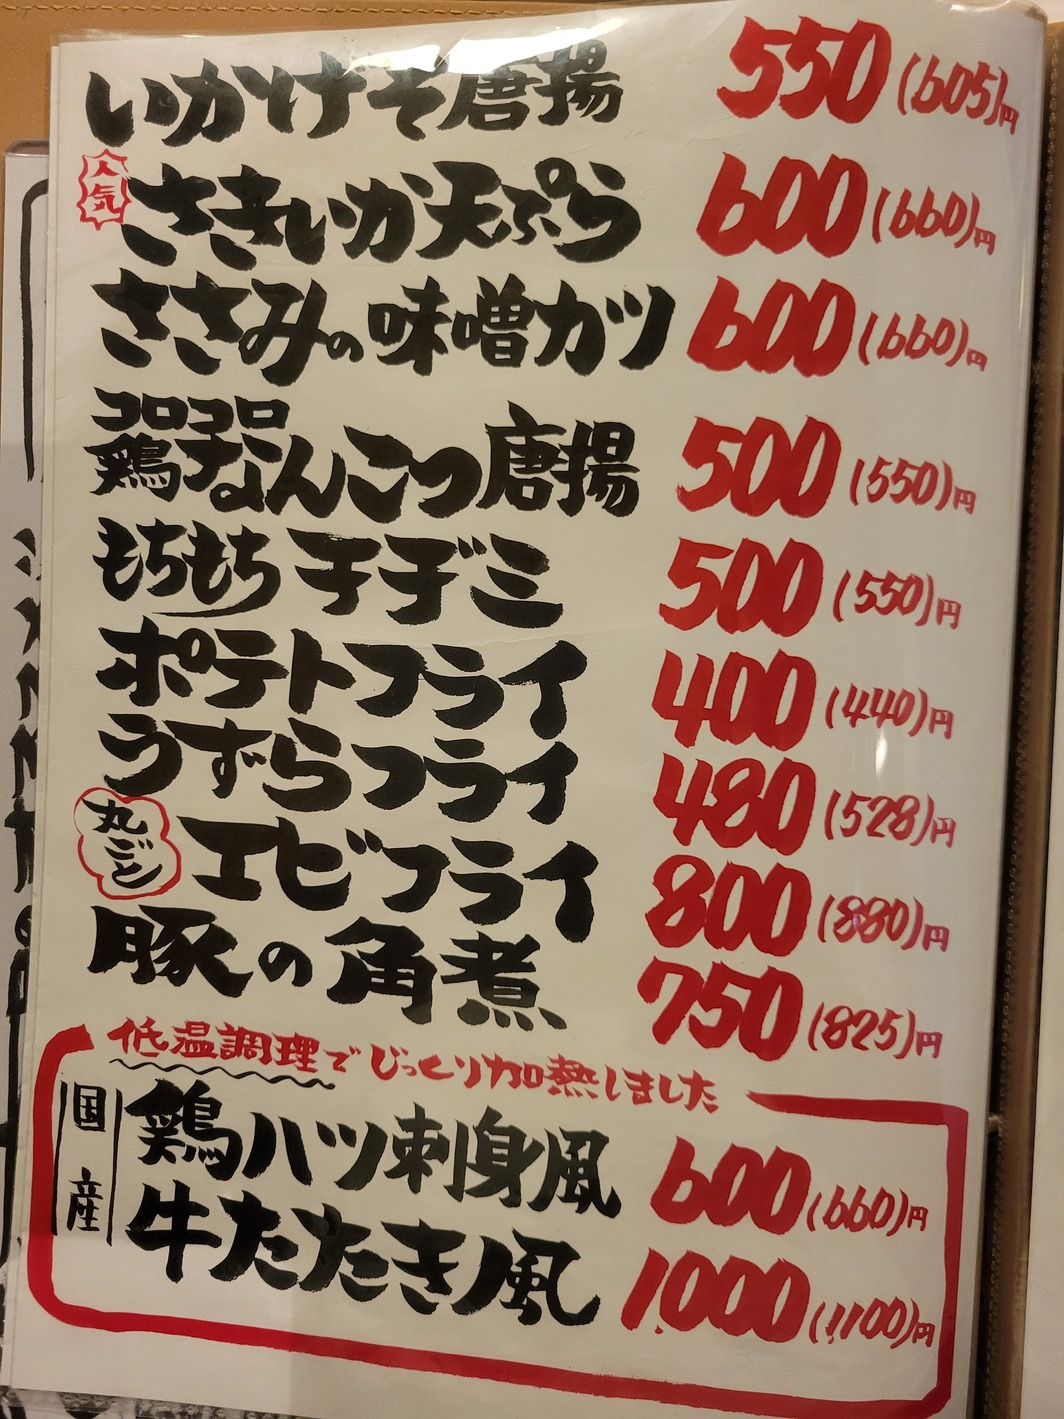 いかげそ唐揚 550(605)円
人気 さきいか天ぷら 600(660)円
ささみの味噌カツ 600(660)円
コロコロ
鶏子なんこつ唐揚 500(550)円
もちもちチヂミ 500(550)円
ポテトフライ 400(440)円
うずらフライ 480(528)円
丸ごと エビフライ 800(880)円
豚の角煮 750(825)円
低温調理でじっくり加熱しました
国産
鶏ハツ刺身風 600(660)円
牛たたき風 1,000(1,100)円